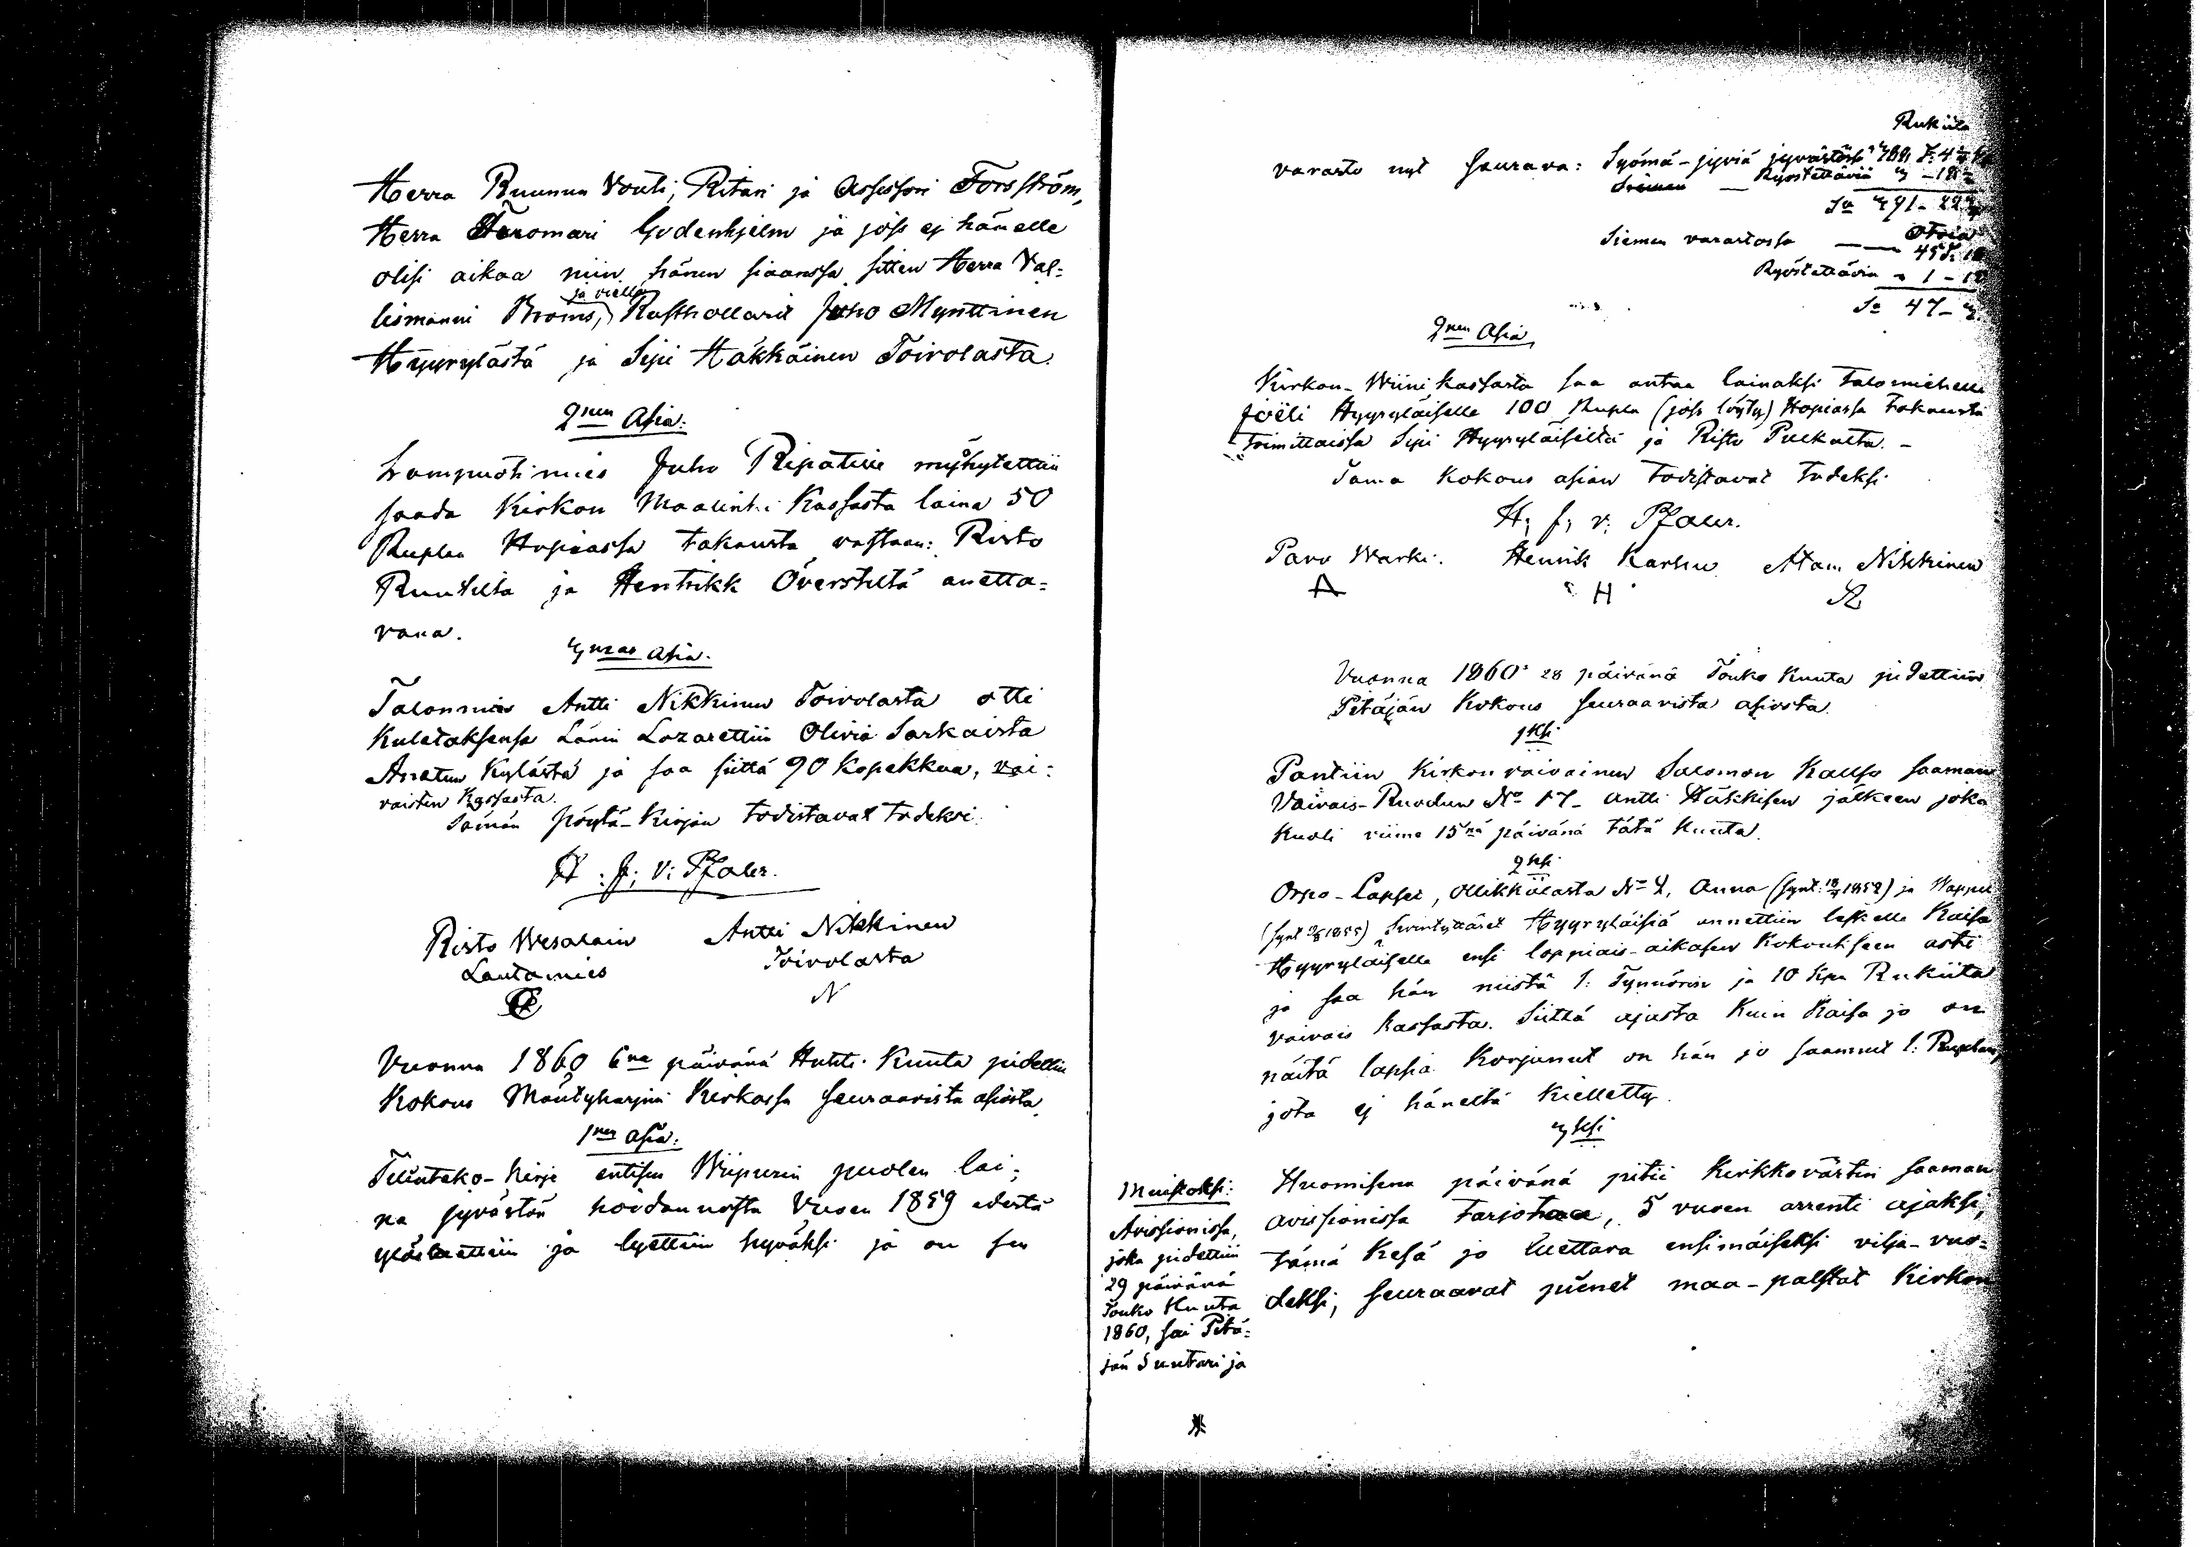 Herra Ruunun Vouti, Ritari ja Assessori Forsström,
Herra Tuomari Godenhjelm ja joss ej hänelle
olisi aikaa niin hänen siaansa sitten Herra Val-
lesmanni Broms, ja viellä Rusthollarit Juho Mynttinen
Hyyrylästä ja Sipi Häkkäinen Toivolasta.
2nen Asia:
Lampuotimies Juho Ripatille myöhytettiin
saada Kirkon Maalinki Kassasta laina 50
Ruplaa Hopiassa takausta vastaan: Risto
Ruutilta ja Hentrikk Överstiltä anetta-
vana.
3mas Asia.
Talonmies Antti Nikkinen Toivolasta otti
Kuletaksensa Länin Lazarettiin Olivia Sarkaista
Anatun Kylästä ja saa siittä 90 Kopekkaa, vai-
vaisten Kassasta.
Tämän pöytä-Kirjan todistavat todeksi.
H: J: v: Pfaler.
Risto Wesalain Antti Nikkinen
Lautamies Toivolasta
N
Vuonna 1860 6na päivänä Huhti-Kuuta pidettiin
Kokous Mäntyharjun Kirkossa seuraavista asioista.
1nen Asia:
Tilinteko-kirja entisen Wiipurin puolen lai-
na jyvästön hoidannosta Vuoen 1859 edestä
ylösluettiin ja lyettiin hyväksi ja on sen
Rukiita
varasto nyt seurava: Syömä-jyviä jyvästössä
Siemen — Ryöstettäviä
Siemen varastossa — Otria
Ryöstettäviä 1 -
Sa 47-
2nen Asia
Kirkon-Wiini kassasta saa antaa lainaksi talomiehelle
Joeli Hyyryläiselle 100 Rupla (joss löyty) Hopiassa takausta
toimittaissa Sipi Hyyryläiseltä ja Risto Pulkalta.-
Tama Kokous asian todistavat todeksi.
H; J; v: Pfaler.
Pavo Warki. Henrik Karhu Atam Nikkinen
A H
Vuonna 1860 28 päivänä Touko Kuuta pidettiin
Pitäjän Kokous seuraavista asioista.
1ksi
Pantiin Kirkon vaivainen Salomon Kallso saamaan
Vaivais-Ruodun No 17- Antti Häkkisen jälkeen joka
Kuoli viime 15nä päivänä tätä Kuuta.
2ksi
Orpo-Lapset, Ollikkälasta No 4, Anna (synt: 1852) ja Wappu
(synt 1855) Hyyryläisiä annettiin leskelle Kaisa
Hyyryläiselle ensi loppiais-aikasen Kokoukseen asti
ja saa hän niistä 1: Tynnörin ja 10 Kpa Rukiita
vaivais kassasta. Siittä ajasta Kuin Kaisa jo on
näitä lapsia Korjanut on hän jo saannut 1: Ruplan,
jota ej häneltä Kielletty.
3ksi
Huomisena päivänä pitii Kirkkovärtin saaman
avissionissa tarjotaa, 5 vuoen arrenti ajaksi,
tämä Kesä jo luettava ensimäiseksi vilja-vuo-
deksi, seuraavat pienet maa-palstat Kirkon
Muistoksi:
Avissionissa,
joka pidettiin
29 päivänä
Touko Kuuta
1860, sai Pitä-
jän Suutari ja